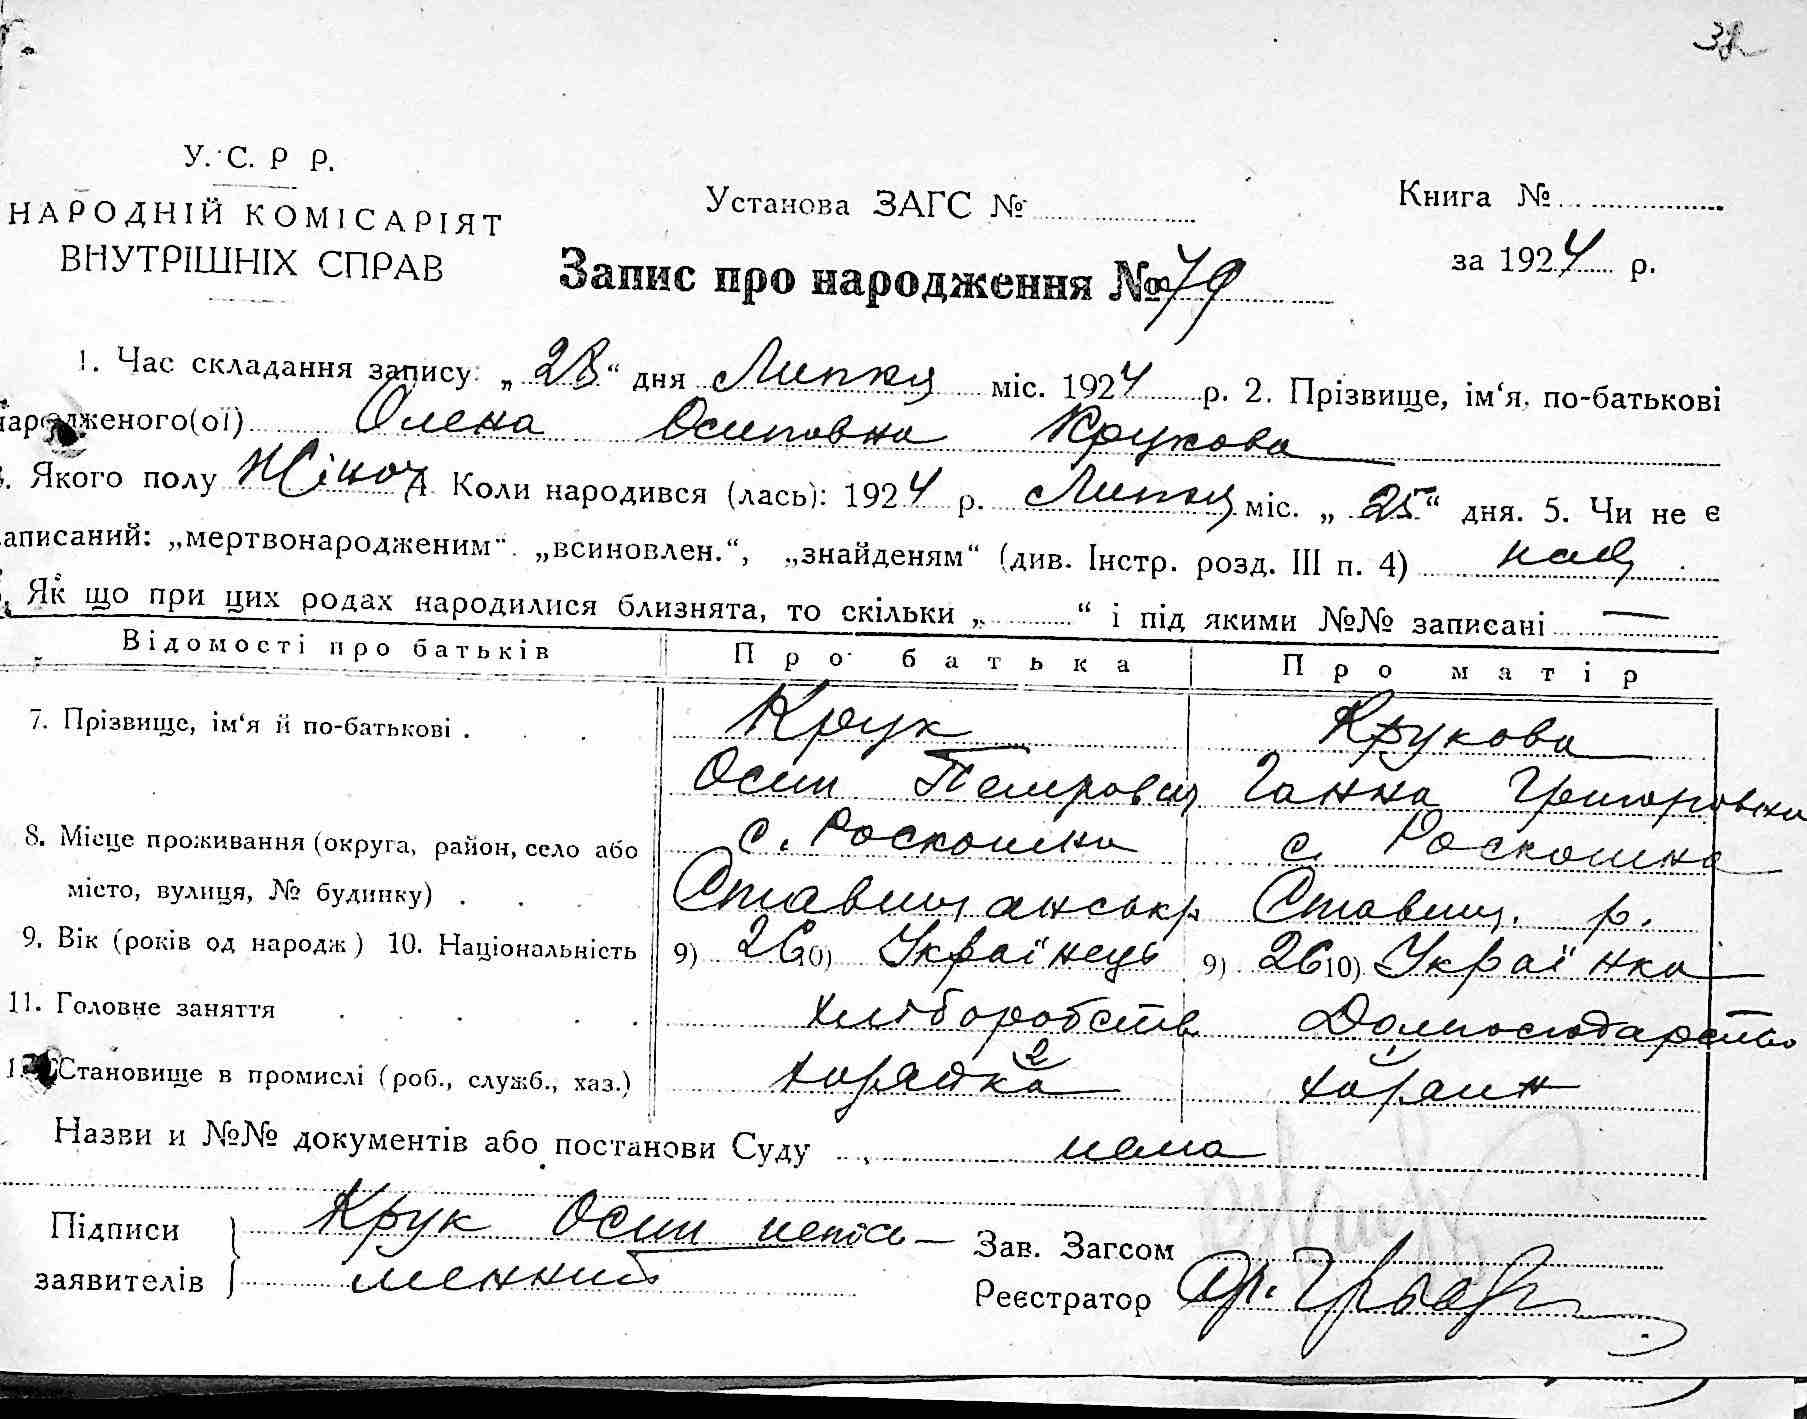 У. С. Р Р.
НАРОДНІЙ КОМІСАРІЯТ
ВНУТРІШНІХ СПРАВ
Установа ЗАГС №
Книга №
за 1924 р.
Запис про народження № 79
1. Час складання запису: „28“ дня Липня міс. 1924 р. 2. Прізвище, ім‘я, по-батькові
народженого(ої) Олена Осиповна Крукова
. Якого полу Жіноч Коли народився (лась): 1924 р. Липня міс. „25“ дня. 5. Чи не є
аписаний: „мертвонародженим“. „всиновлен.“, „знайденям“ (див. Інстр. розд. III п. 4)
Як що при цих родах народилися близнята, то скільки „ “ і під якими №№ записані —
Відомості про батьків Про батька Про матір
7. Прізвище, ім‘я й по-батькові . Крук Крукова
Осип Петрович Ганна Григоровна
8. Місце проживання (округа, район, село або с. Роскошна с. Роскошна
місто, вулиця, № будинку) . Ставищанськ р. Ставищ. р.
9. Вік (років од народж) 10. Національність 9) 26 10) Українець 9) 26 10) Українка
11. Головне заняття хліборобств Домгосподарство
Становище в промислі (роб., служб., хаз.)
Назви и №№ документів або постанови Суду нема
Підписи Крук Осип непись-
заявителів менний
Зав. Загсом
Реєстратор